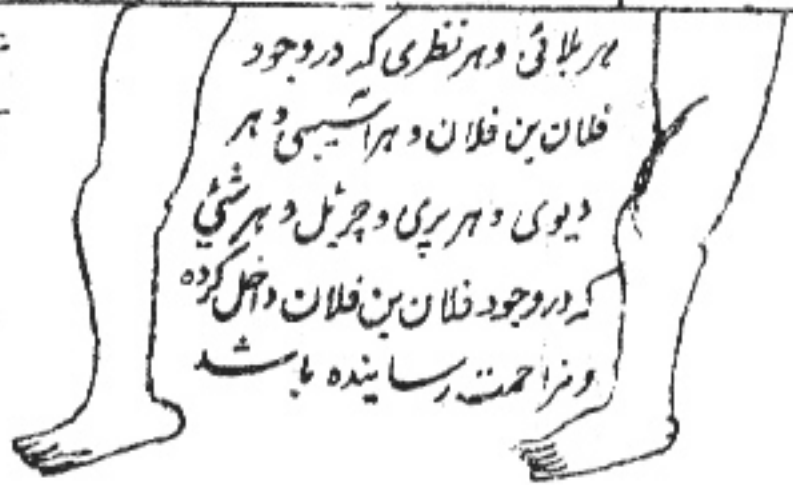 هر بلائی و هر نظری که در وجود
فلان بن فلان و هر آسیبی و هر
دیوی و هر پری و چڑیل و هر شئی
که در وجود فلان بن فلان داخل کرده
و مزاحمت رساینده باشد